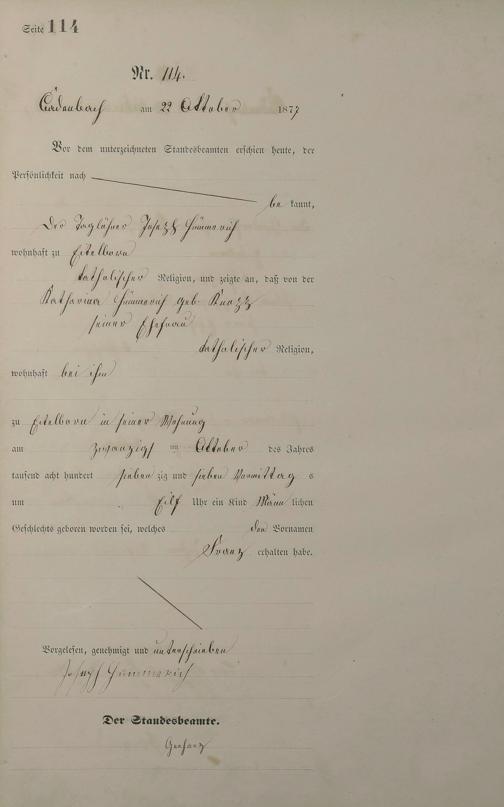 Seite 114
Nr. 114.
Cadenbach am 22 Oktober 1877
Vor dem unterzeichneten Standesbeamten erschien heute, der
Persönlichkeit nach
be kannt,
Der Taglöhner Joseph Hümmerich
wohnhaft zu Eitelborn
katholischer Religion, und zeigte an, daß von der
Katharina Hümmerich geb.
seiner Ehefrau
katholischer Religion,
wohnhaft bei ihm
zu Eitelborn in seiner Wohnung
am zwanzigst en Oktober des Jahres
tausend acht hundert sieben zig und sieben Vormittag s
um Eilf Uhr ein Kind Männ lichen
Geschlechts geboren worden sei, welches den Vornamen
Franz erhalten habe.
Vorgelesen, genehmigt und unterschrieben
Joseph Hümmerich
Der Standesbeamte.